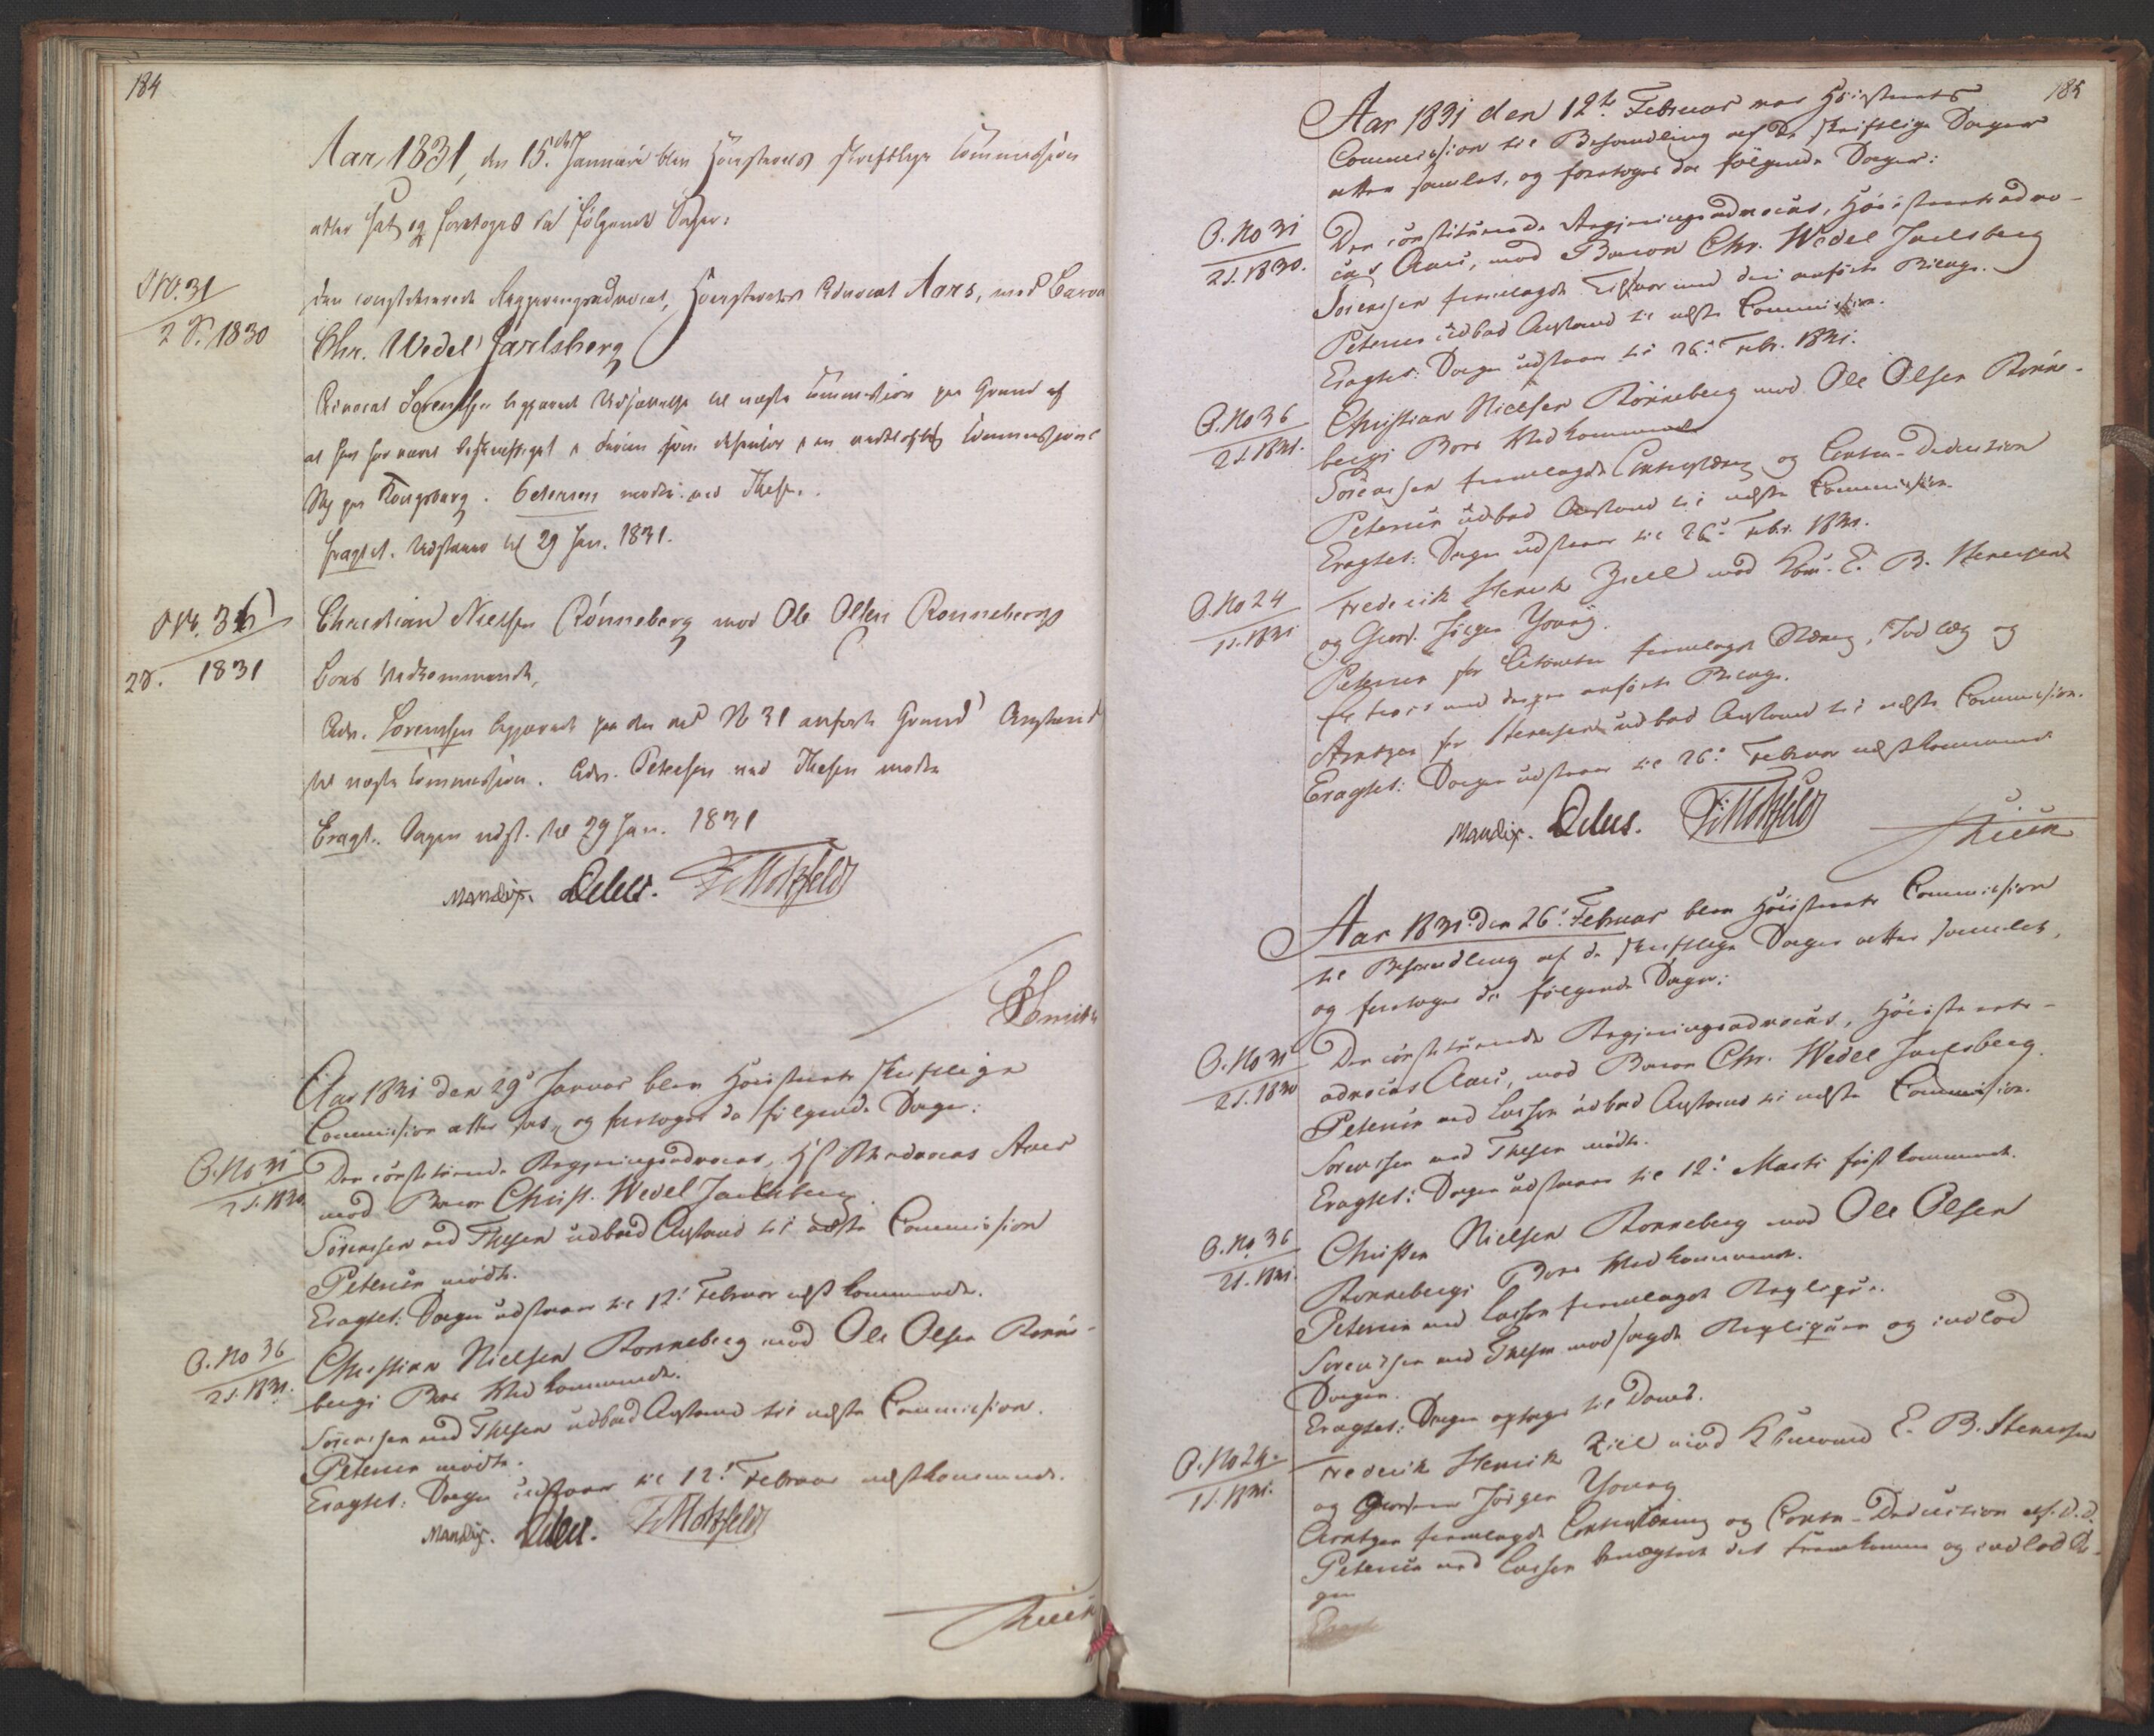 184
Aar 1831, den 15. Januari blev Høiesterets skriftlige Commission
atter sat og foretoges da følgende Sager:
O No. 31
2 S. 1830
Den constituerede Regjeringsadvocat, Høiesterets Advocat Aars, mod Baron
Chr. Wedel Jarlsberg
Advocat Sørenssen begjærede Udsættelse til næste Commission paa Grund af
at han har været beskjæftiget
Sag paa Kongsberg. Petersen mødte ved Thesen.
Eragtet. Udstaaer til 29 Jan. 1831.
O No. 36
2 S. 1831
Christian Nielsen Rønneberg mod Ole Olsen Ronnebergs
Boes Vedkommende,
Adv. Sørenssen begjærede paa den ved No 31 anførte Grund Anstand
til næste Commission. Adv. Petersen ved Thesen mødte
Eragt. Sagen udst. til 29 Jan. 1831
Mandix. Debes. F Motzfeldt
Smith
Aar 1831 den 29 Januar blev Høiesterets skriftlige
Commission atter sat, og foretoges da følgende Sager:
O. No 31
2 S. 1830
Den constituerede Regjeringsadvocat, HsRAdvocat Aars
mod Baron Christ. Wedel Jarlsberg.
Sørenssen ved Thesen udbad Anstand til næste Commission
Petersen mødte.
Eragtet: Sagen udstaaer til 12 Februar næstkommende.
O. No 36
2 S. 1831.
Christian Nielsen Ronneberg mod Ole Olsen Rønne-
bergs Boes Vedkommende.
Sørenssen ved Thesen udbad Anstand til næste Commission.
Petersen mødte.
Eragtet: Sagen udstaaer til 12 Februar næstkommende.
Mandix. Debes. F Motzfeldt
185
Aar 1831 den 12te Februar var Høiesterets
Commission til Behandling af de skriftlige Sager
atter samlet, og foretoges da følgende Sager:
O. No 31
2 S. 1830.
Den constituerede Regjeringsadvocat, Høiesteretsadvo-
cat Aars, mod Baron Chr. Wedel Jarlsberg
Sørenssen fremlagde Tilsvar med deri anførte Bilage.
Petersen udbad Anstand til næste Commission.
Eragtet: Sagen udstaaer til 26 Febr. 1831.
O. No 36
2 S. 1831.
Christian Nielsen Rønneberg mod Ole Olsen Rønne-
bergs Boes Vedkommende
Sørenssen fremlagde Contraindlæg og Contra-Deduction
Petersen udbad Anstand til næste Commission
Eragtet: Sagen udstaaer til 26 Febr. 1831.
O. No 24
1 S. 1831
Frederik Henrik Ziell mod Kbm. E. B. Stenersen
og Grosf. Jørgen Young.
Petersen for Citanten fremlagde Stævning, Indlæg og
med deri anførte Bilage.
Arntzen for Stenersen udbad Anstand til næste Commission.
Eragtet: Sagen udstaaer til 26 Februar næstkommende
Mandix. Debes. F Motzfeldt
Aar 1831 den 26 Februar blev Høiesterets Commission
til Behandling af de skriftlige Sager atter samlet,
og foretoges da følgende Sager:
O. No 31
2 S. 1830
Den constituerede Regjeringsadvocat, Høiesterets-
advocat Aars, mod Baron Chr. Wedel Jarlsberg.
Petersen ved Lassen udbad Anstand til næste Commission.
Sørenssen ved Thesen mødte.
Eragtet: Sagen udstaaer til 12 Marts førstkommende.
O. No. 36
2 S. 1831.
Christen Nielsen Ronneberg mod Ole Olsen
Ronnebergs Boes Vedkommende.
Petersen ved Lassen fremlagde Repliqve.
Sørenssen ved Thesen modsagde Repliqven og indlod
Sagen.
Eragtet: Sagen optages til Doms.
O. No 24.
1 S. 1831.
Frederik Henrik Ziel mod Kbmand E. B. Stenersen
og Grosserer Jørgen Young
Arntzen fremlagde Contrastævning og Contra-Deduction af D. D.
Petersen ved Lassen benægtede det Fremkomne og indlod Sa-
gen